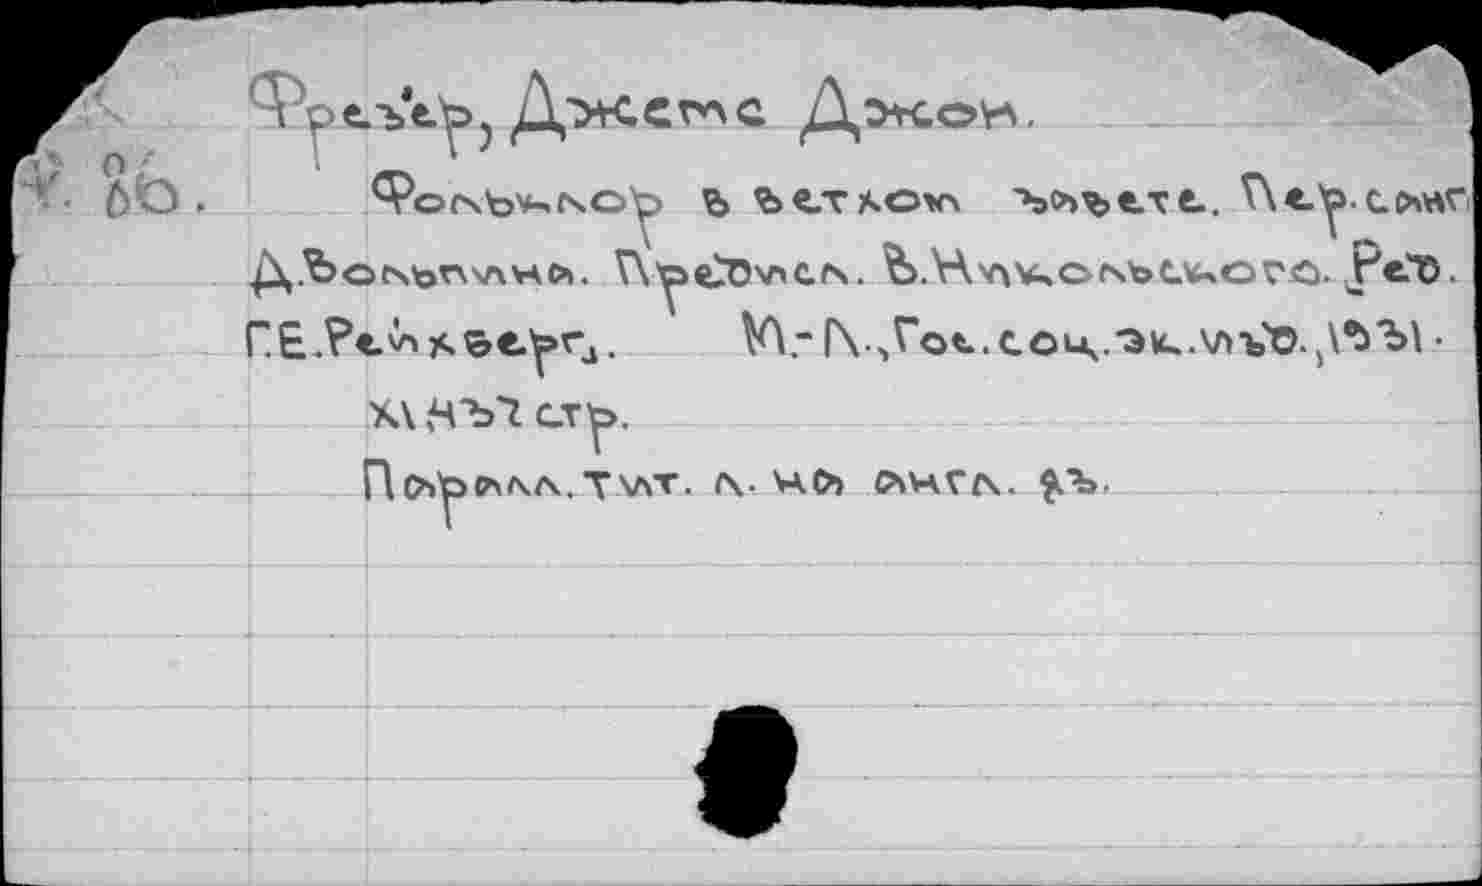 Фрезер, Джемс Джон.
86. Фольклор в ветхом завете. Пер. с англ
Д.Вольпина. Предисл. В.Никольского. Ред.
Г.Е.Рейхберг. М.-Л., Гос. соц. эк. изд., 1931.
XI, 437 стр.
Паралл. тит. л. на англ. яз.